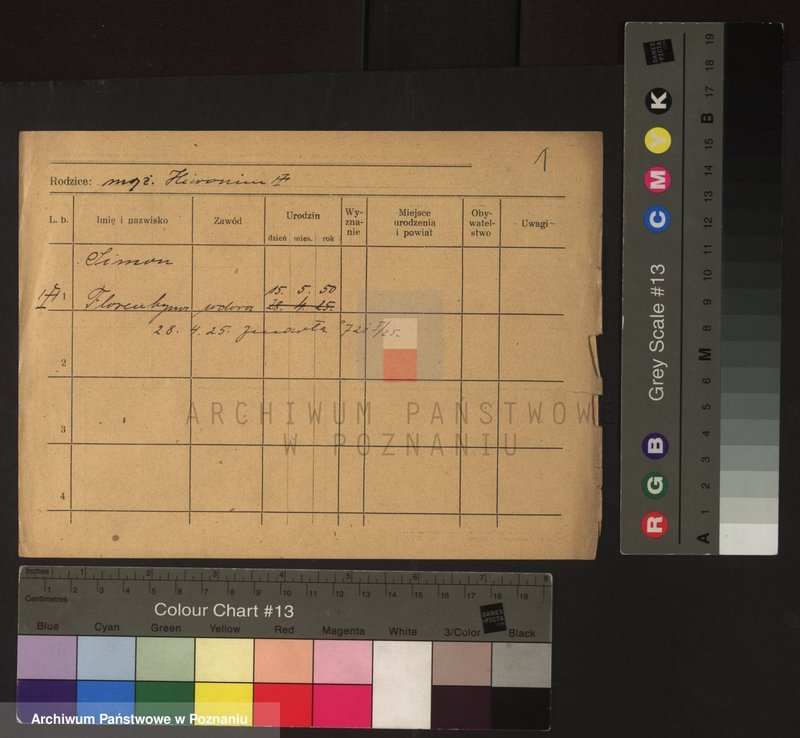 1
Rodzice: mąż. Hieronim
L. b. Imię i nazwisko Zawód Urodzin Wy-zna-nie Miejsce urodzenia i powiat Oby-watel-stwo Uwagi
dzień mies. rok
Simon
15. 5. 50
1 wdowa 28. 4. 25.
28. 4. 25. zmarła
2
3
4
ARCHIWUM PAŃSTWOWE
W POZNANIU
Inches 1 2 3 4 5 6 7 8
Centimetres 1 2 3 4 5 6 7 8 9 10 11 12 13 14 15 16 17 18 19
Colour Chart #13
DANES-PICTA
Blue Cyan Green Yellow Red Magenta White 3/Color Black
Archiwum Państwowe w Poznaniu
Grey Scale #13
DANES-PICTA
R G B C M Y K
A 1 2 3 4 5 6 M 8 9 10 11 12 13 14 15 B 17 18 19